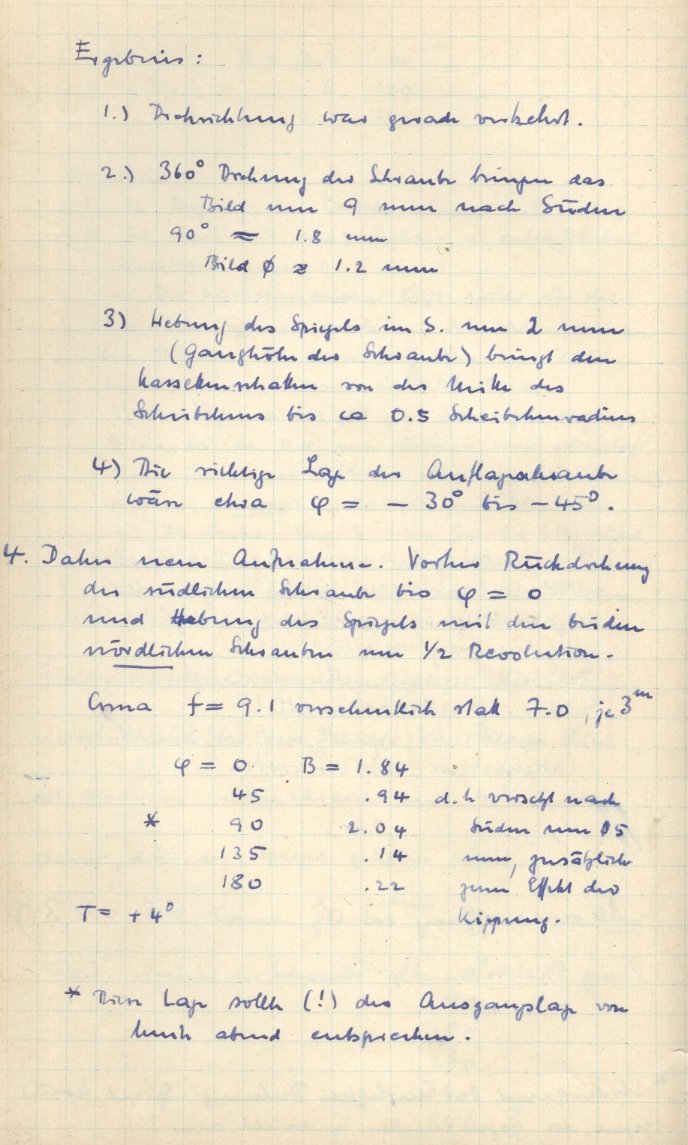 Ergebnis:
1.) Drehrichtung war gerade verkehrt.
2.) 360° Drehung der Schraube bringen das
Bild um 9 mm nach Süden
90° ≈ 1.8 mm
Bild ø ≈ 1.2 mm
3) Hebung des Spiegels im S. um 2 mm
(Ganghöhe der Schraube) bringt den
Kassettenschatten von der Mitte des
Scheibchens bis ca 0.5 Scheibchenradius
4) Die richtige Lage der Auflageschraube
wäre etwa φ = - 30° bis - 45°.
4. Daher neue Aufnahme. Vorher Rückdrehung
der südlichen Schraube bis φ = 0
und Hebung des Spiegels mit den beiden
nördlichen Schrauben um 1/2 Revolution.
Coma f = 9.1 versehentlich statt 7.0, je 3m
φ = 0 B = 1.84
45 .94 d.h. versetzt nach
* 90 2.04 Süden um 15
135 .14 mm, zusätzlich
180 .22 zum Effekt der
T = + 4° Kippung.
* Diese Lage sollte (!) der Ausgangslage von
heute abend entsprechen.